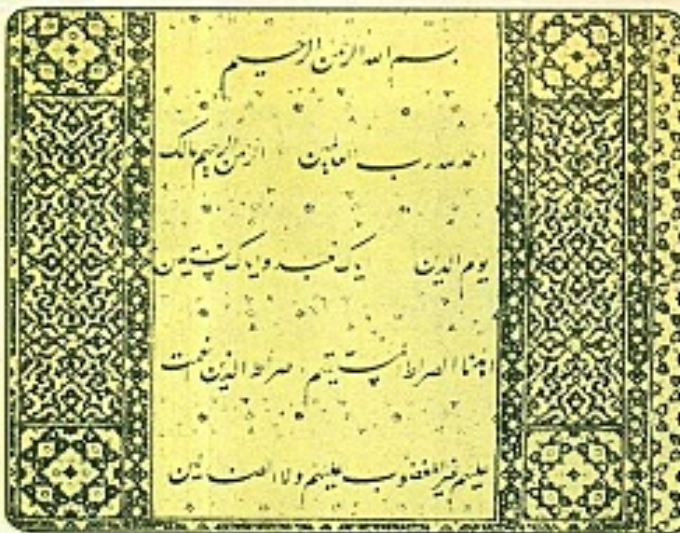 بسم الله الرحمن الرحیم
الحمد لله رب العالمین الرحمن الرحیم مالک
یوم الدین ایاک نعبد و ایاک نستعین
اهدنا الصراط المستقیم صراط الذین انعمت
علیهم غیر المغضوب علیهم ولا الضالین